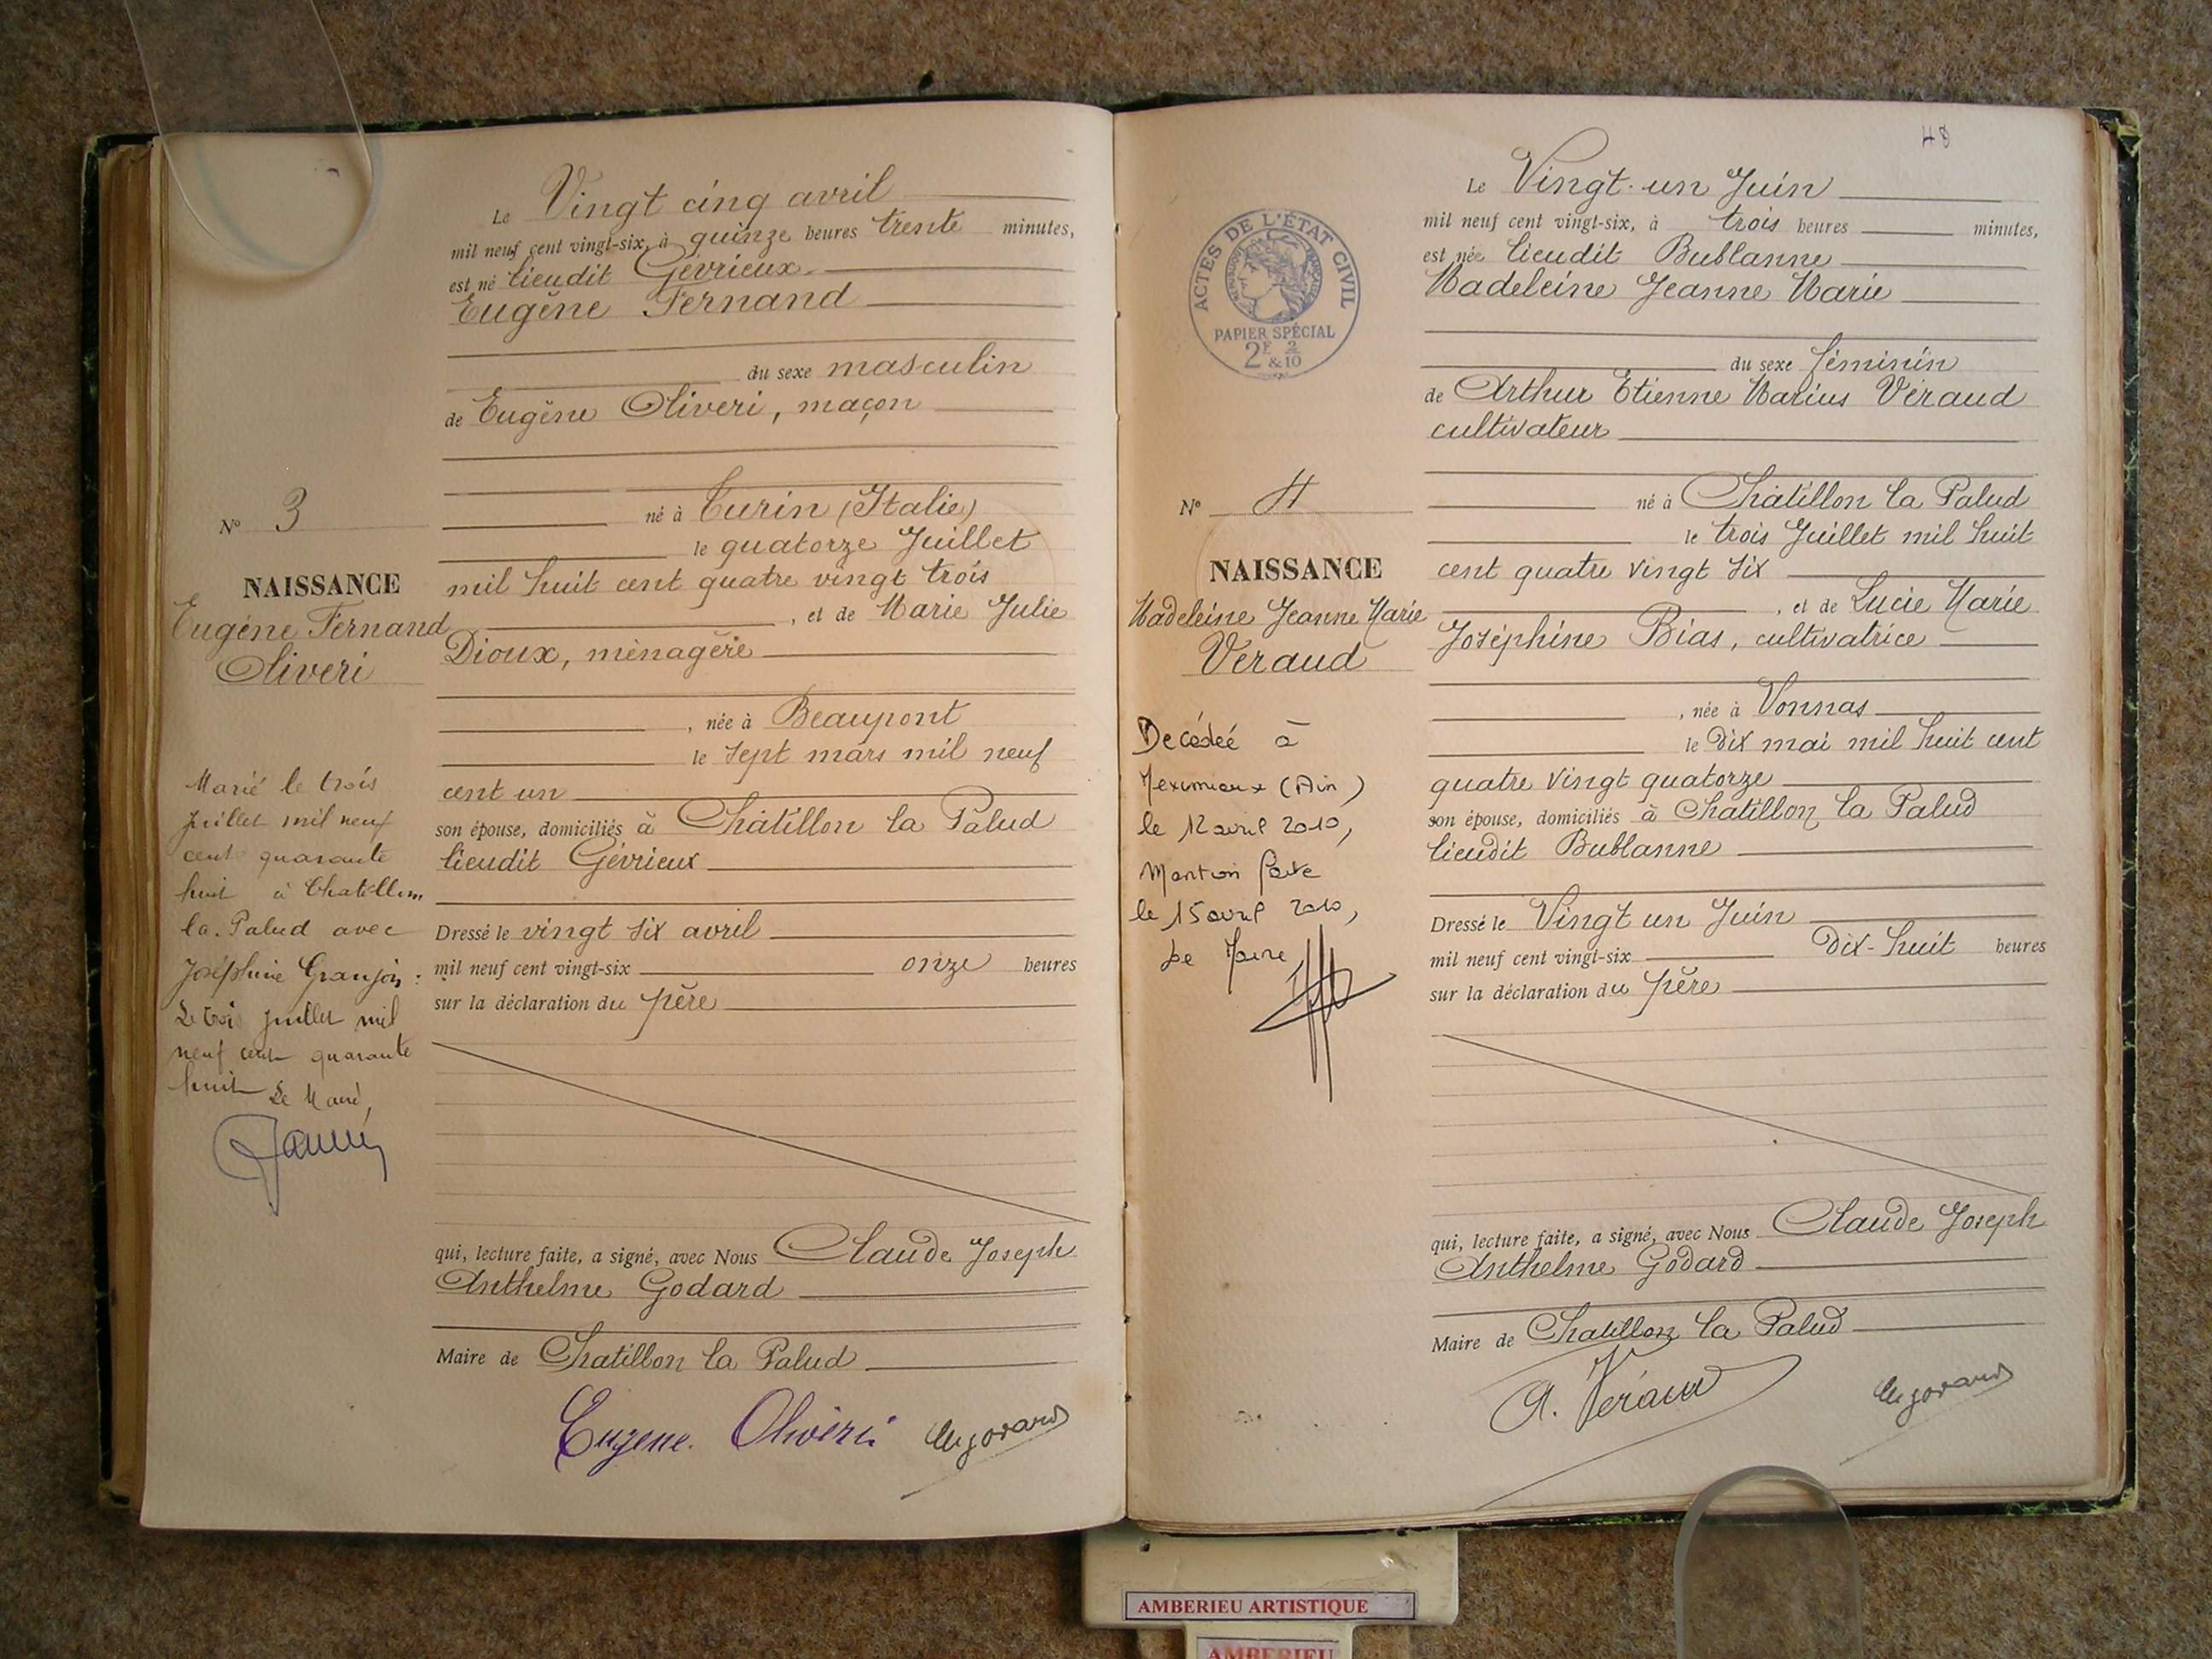 Le Vingt cinq avril
mil neuf cent vingt-six, à quinze heures trente minutes,
est né lieudit Gévrieux
Eugène Fernand
du sexe masculin
de Eugène Oliveri, maçon
né à Turin (Italie)
le quatorze Juillet
mil huit cent quatre vingt trois
, et de Marie Julie
Dioux, ménagère
, née à Beaupont
le sept mars mil neuf
cent un
son épouse, domiciliés à Châtillon la Palud
lieudit Gévrieux
Dressé le vingt six avril
mil neuf cent vingt-six onze heures
sur la déclaration du père
qui, lecture faite, a signé, avec Nous Claude Joseph
Anthelme Godard
Maire de Chatillon la Palud
Eugene. Oliveri
N° 3
NAISSANCE
Eugène Fernand
Oliveri
Marié le trois
juillet mil neuf
cent quarante
huit à Chatillon
la Palud avec
Joséphine Granjon :
Le trois juillet mil
neuf cent quarante
huit Le Maire,
48
Le Vingt-un Juin
mil neuf cent vingt-six, à trois heures minutes,
est née lieudit Bublanne
Madeleine Jeanne Marie
du sexe féminin
de Arthur Etienne Marius Véraud
cultivateur
né à Châtillon la Palud
le trois Juillet mil huit
cent quatre vingt six
, et de Lucie Marie
Joséphine Bias, cultivatrice
, née à Vonnas
le dix mai mil huit cent
quatre vingt quatorze
son épouse, domiciliés à Chatillon la Palud
lieudit Bublanne
Dressé le Vingt un Juin
mil neuf cent vingt-six Dix-huit heures
sur la déclaration du père
qui, lecture faite, a signé, avec Nous Claude Joseph
Anthelme Godard
Maire de Chatillon la Palud
A. Veraud
ACTES DE L'ÉTAT CIVIL
PAPIER SPÉCIAL
2F 2
&10
N° 4
NAISSANCE
Madeleine Jeanne Marie
Véraud
Decédeé à
Meximieux (Ain)
le 12 avril 2010,
Mention faite
le 15 avril 2010,
Le Maire
AMBERIEU ARTISTIQUE
AMBERIEU